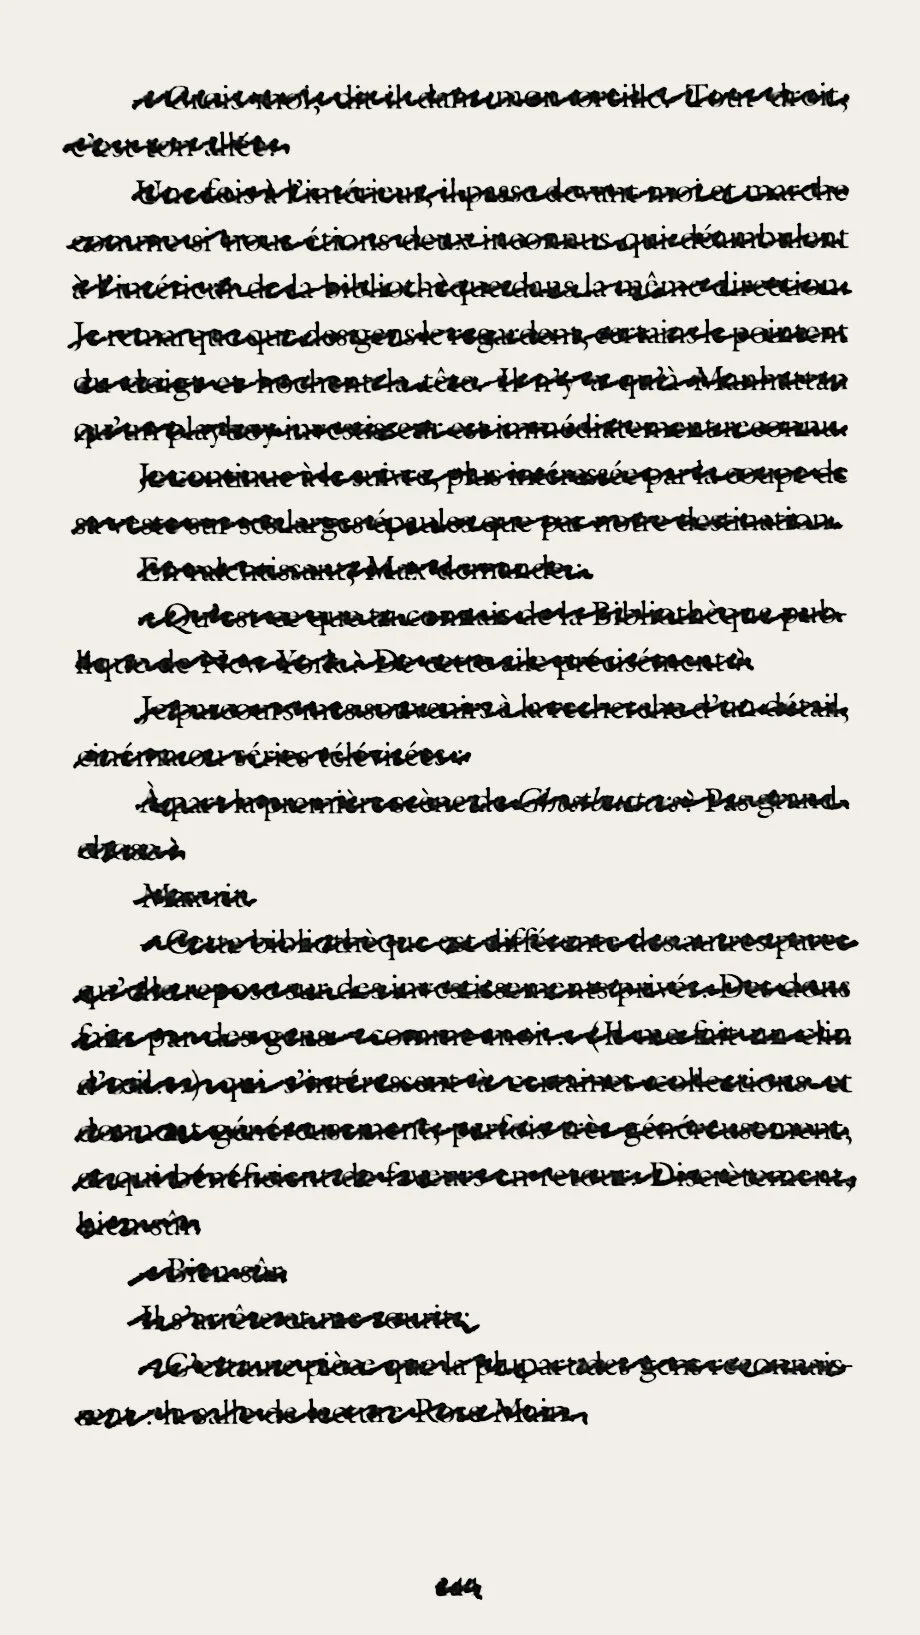 – Crois-moi, dit-il dans mon oreille. Tout droit,
c'est ton allée.
Une fois à l'intérieur, il passe devant moi et marche
comme si nous étions deux inconnus qui déambulent
à l'intérieur de la bibliothèque dans la même direction.
Je remarque que des gens le regardent, certains le pointent
du doigt et hochent la tête. Il n'y a qu'à Manhattan
qu'un playboy investisseur est immédiatement reconnu.
Je continue à le suivre, plus intéressée par la coupe de
sa veste sur ses larges épaules que par notre destination.
En ralentissant, Max demande :
– Qu'est-ce que tu connais de la Bibliothèque pub-
lique de New York ? De cette aile précisément ?
Je parcours mes souvenirs à la recherche d'un détail,
cinéma ou séries télévisées :
– À part la première scène de Ghostbusters ? Pas grand-
chose
Max rit.
– Cette bibliothèque est différente des autres parce
qu'elle repose sur des investissements privés. Des dons
faits par des gens – comme moi… (Il me fait un clin
d'œil…) qui s'intéressent à certaines collections et
donnent généreusement, parfois très généreusement,
et qui bénéficient de faveurs en retour. Discrètement,
bien sûr.
– Bien sûr.
Il s'arrête et me sourit :
– C'est une pièce que la plupart des gens reconnais-
sent : la salle de lecture Rose Main.